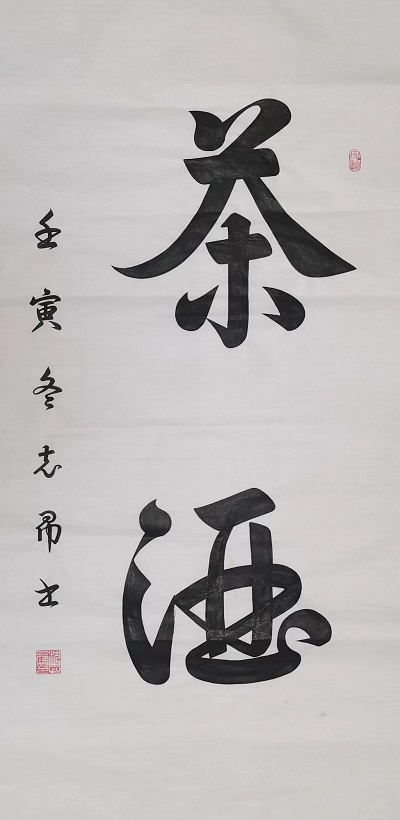 茶酒
壬寅冬志昂书